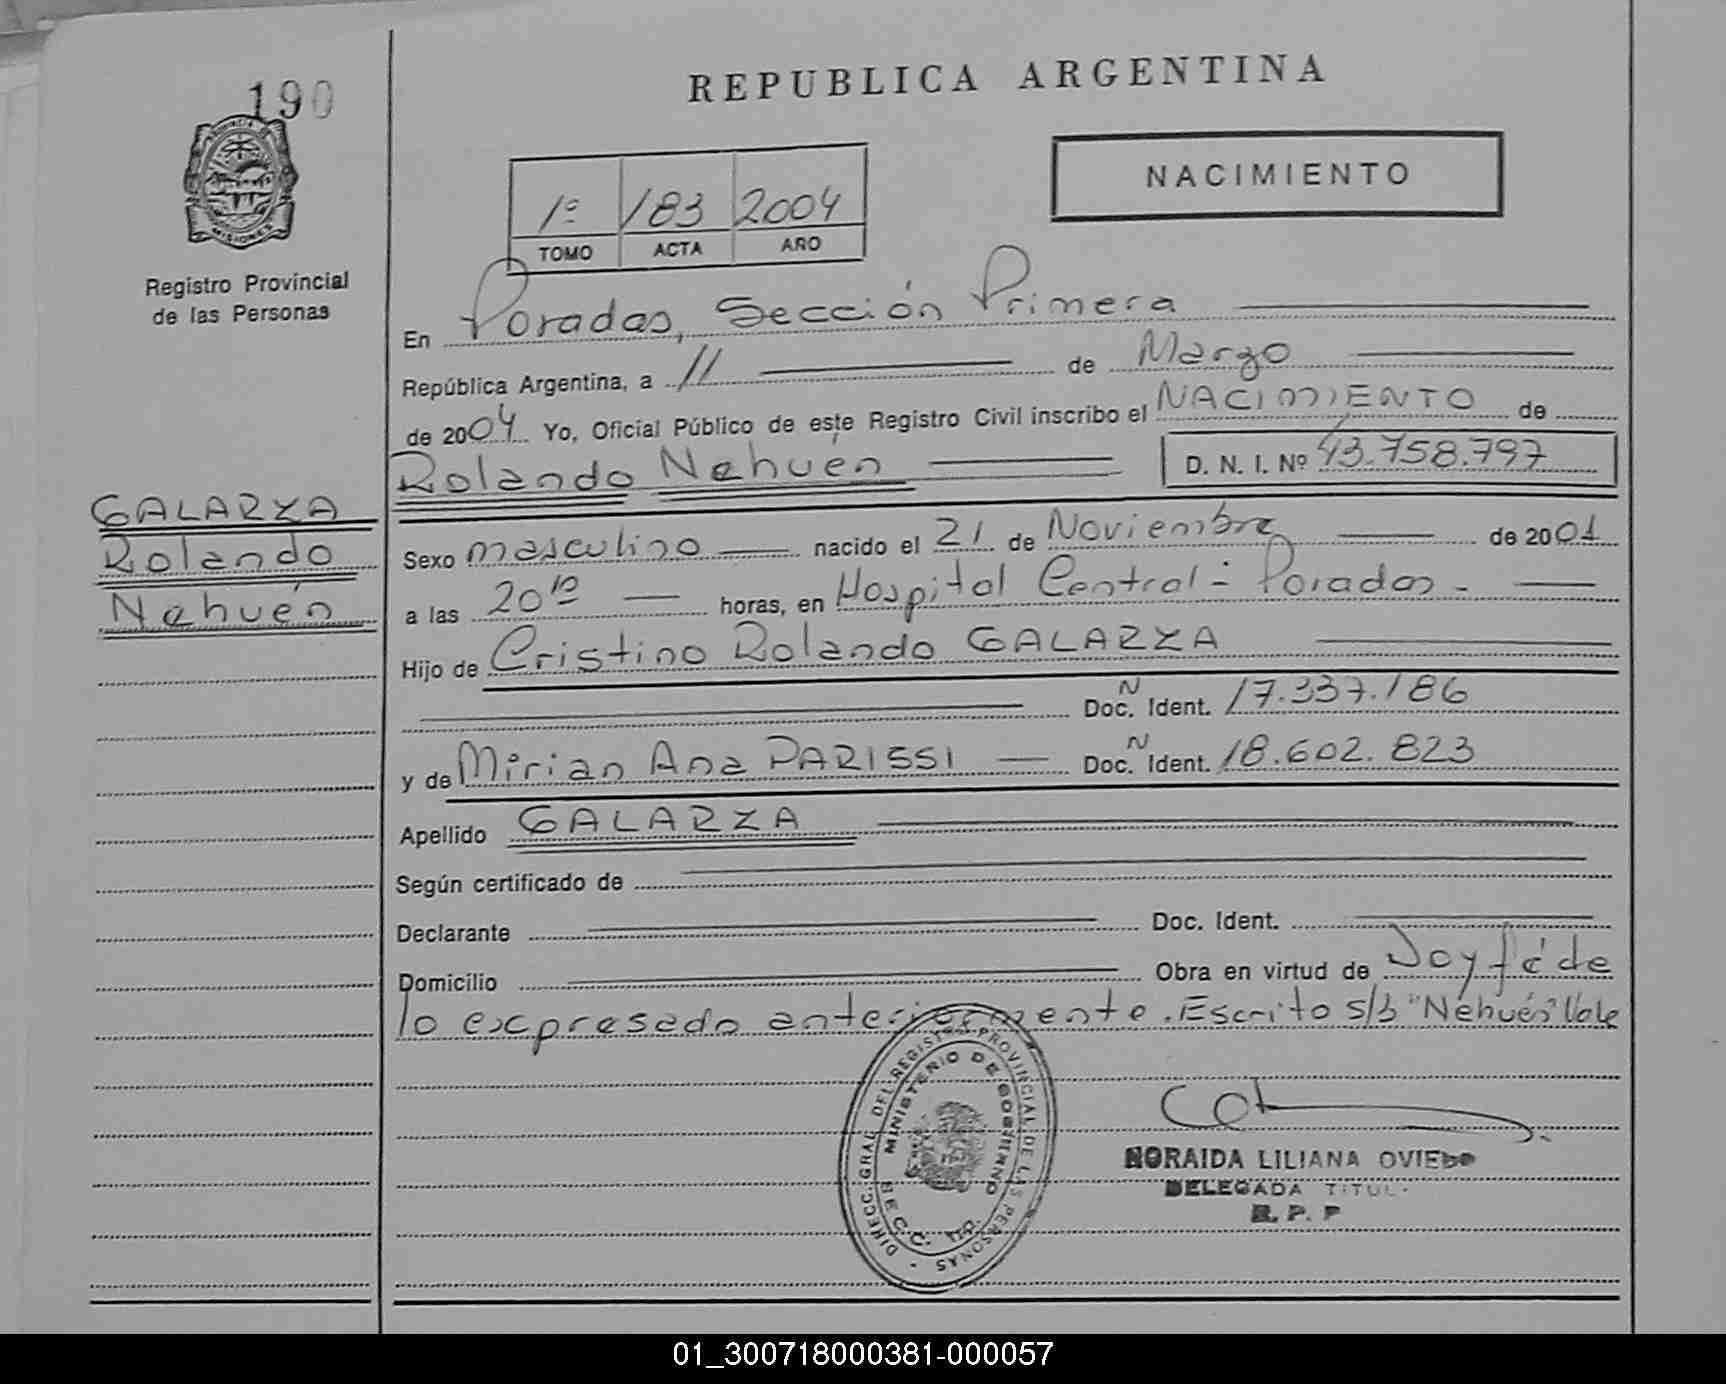 190
PROVINCIA DE
MISIONES
Registro Provincial
de las Personas
GALARZA
Rolando
Nehuén
REPUBLICA ARGENTINA
NACIMIENTO
1º 183 2004
TOMO ACTA AÑO
En Posadas, Sección Primera
República Argentina, a 11 de Marzo
de 2004 Yo, Oficial Público de este Registro Civil inscribo el NACIMIENTO de
Rolando Nehuén D. N. I. Nº 43.758.797
Sexo masculino nacido el 21 de Noviembre de 2001
a las 20 10 horas, en Hospital Central - Posadas -
Hijo de Cristino Rolando GALARZA
Doc. N Ident. 17.337.186
y de Mirian Ana PARISSI Doc. N Ident. 18.602.823
Apellido GALARZA
Según certificado de
Declarante Doc. Ident.
Domicilio Obra en virtud de Doy fé de
lo expresado anteriormente. Escrito s/b "Nehuén" Vale
DIRECC. GRAL. DEL REGISTRO PROVINCIAL DE LAS PERSONAS
MINISTERIO DE GOBIERNO
NORAIDA LILIANA OVIEDO
DELEGADA TITUL
R. P. P
01_300718000381-000057